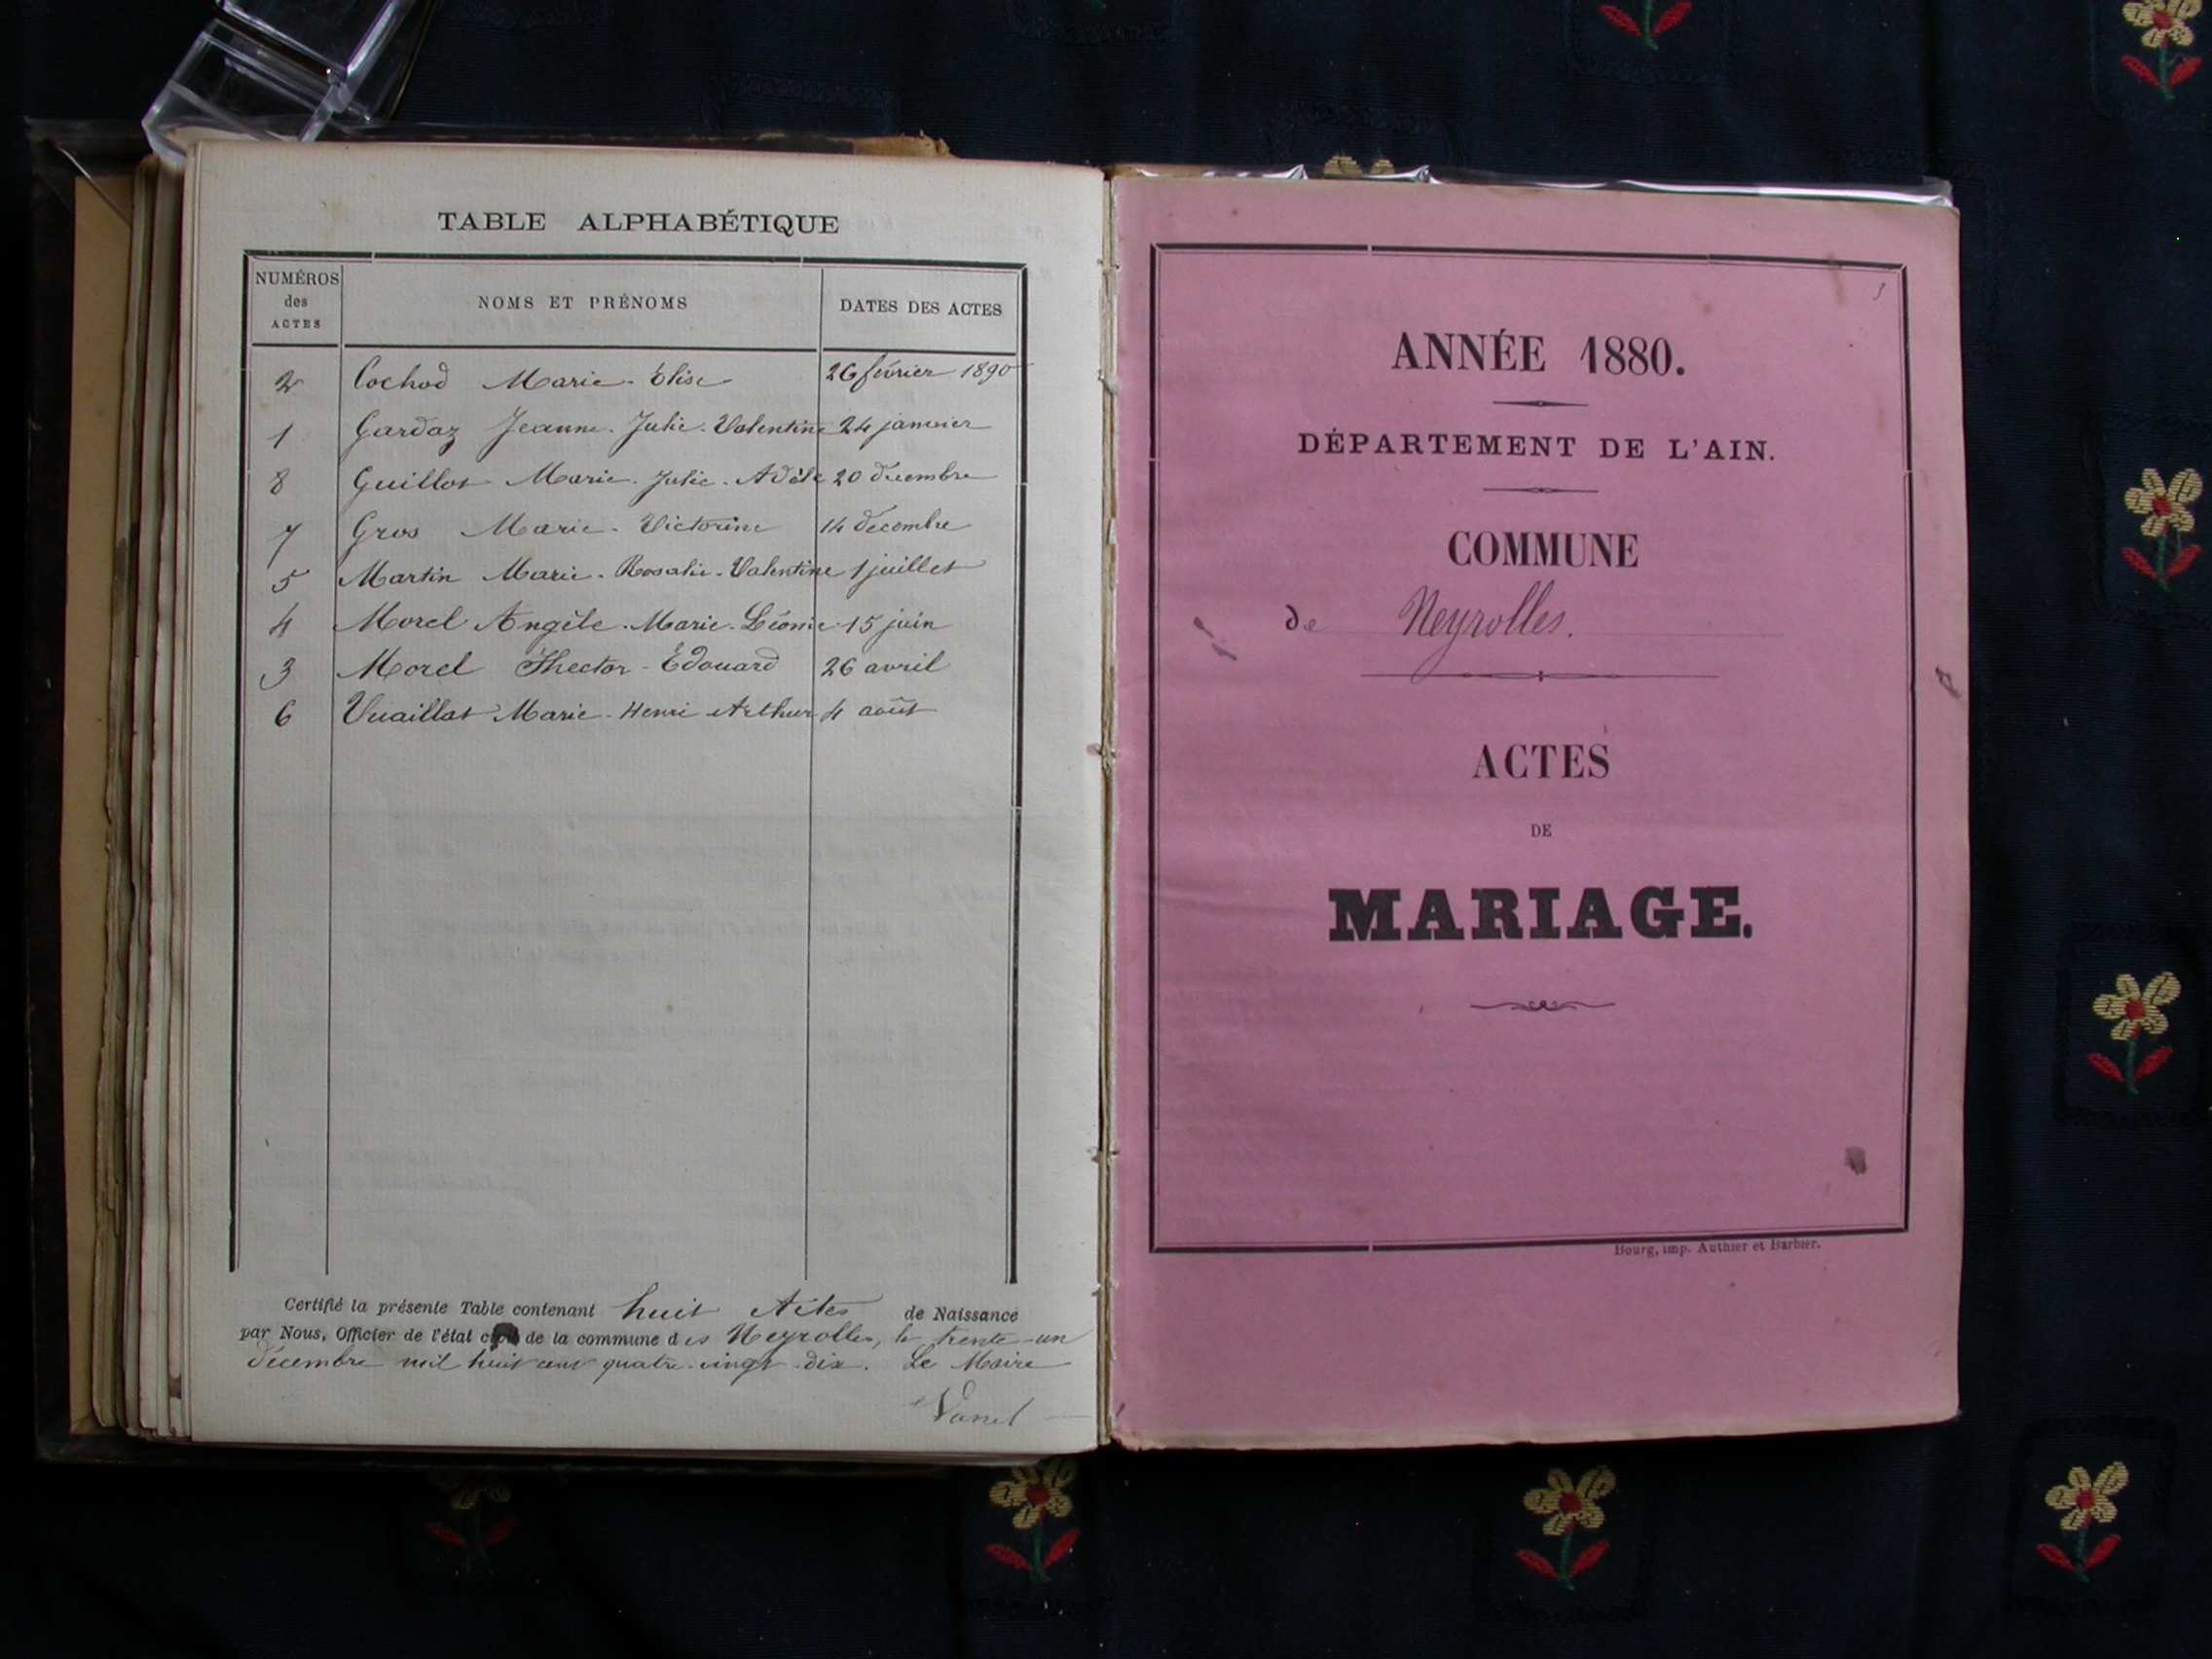 TABLE ALPHABÉTIQUE
NUMÉROS des ACTES NOMS ET PRÉNOMS DATES DES ACTES
2 Cochod Marie-Elise 26 février 1890
1 Gardaz Jeanne-Julie-Valentine 24 janvier
8 Guillot Marie-Julie-Adèle 20 décembre
7 Gros Marie-Victorine 14 décembre
5 Martin Marie-Rosalie-Valentine 1 juillet
4 Morel Angèle-Marie-Léonie 15 juin
3 Morel Hector-Édouard 26 avril
6 Vuaillat Marie-Henri Arthur 4 août
Certifié la présente Table contenant huit Actes de Naissance
par Nous, Officier de l'état civil de la commune des Neyrolles, le trente-un
décembre mil huit cent quatre-vingt-dix. Le Maire
Vanel
3
ANNÉE 1880.
DÉPARTEMENT DE L'AIN.
COMMUNE
de Neyrolles.
ACTES
DE
MARIAGE.
Bourg, imp. Authier et Barbier.